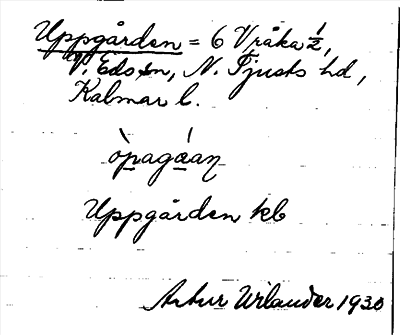 Uppgården = 6 Vråka 1/2,
V. Eds sn, N. Tjusts hd,
Kalmar l.
Uppgården kb
Artur Wilander 1930